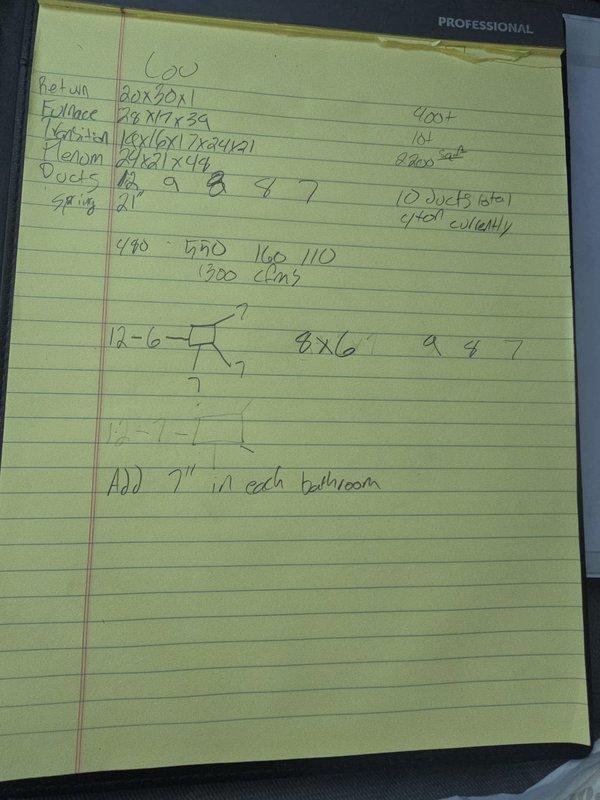 PROFESSIONAL
Lou
Return 20x30x1
Furnace 28x17x39
Transition 18x16x17x24x21
Plenum 24x21x48
Ducts 12 9 8 8 7
Spring 21"
400+
10+
2200 sqft
10 ducts total
4ton currently
480 550 160 110
1300 cfms
7
12-6- 8x6 9 8 7
7
7
12-7-
Add 7" in each bathroom